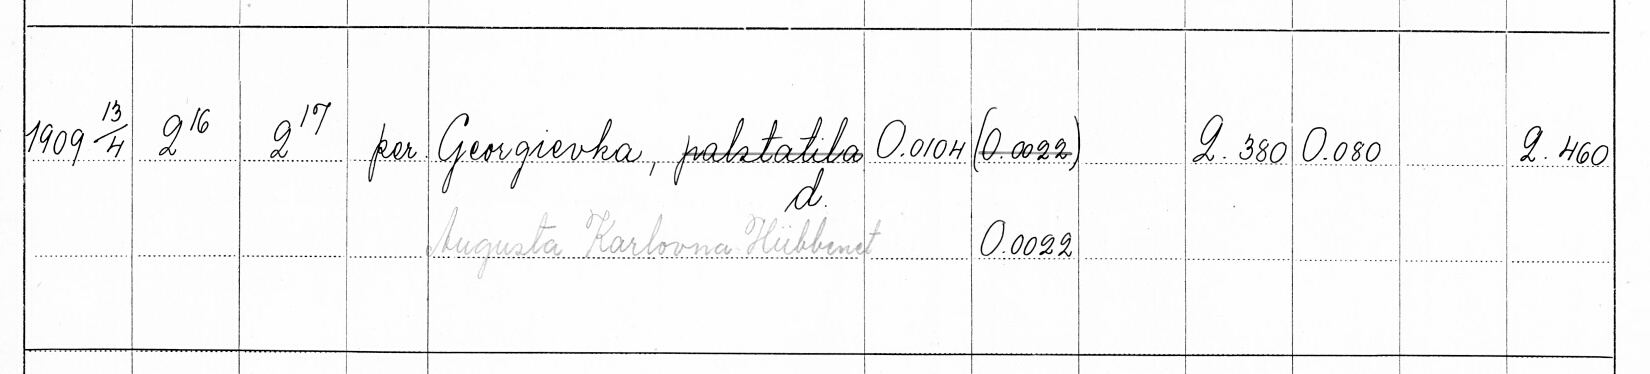 1909 13/4 2¹⁶ 2¹⁷ per Georgievka, palstatila 0.0104 (0.0022) 2.380 0.080 2.460
d.
Augusta Karlovna Hübbenet 0.0022